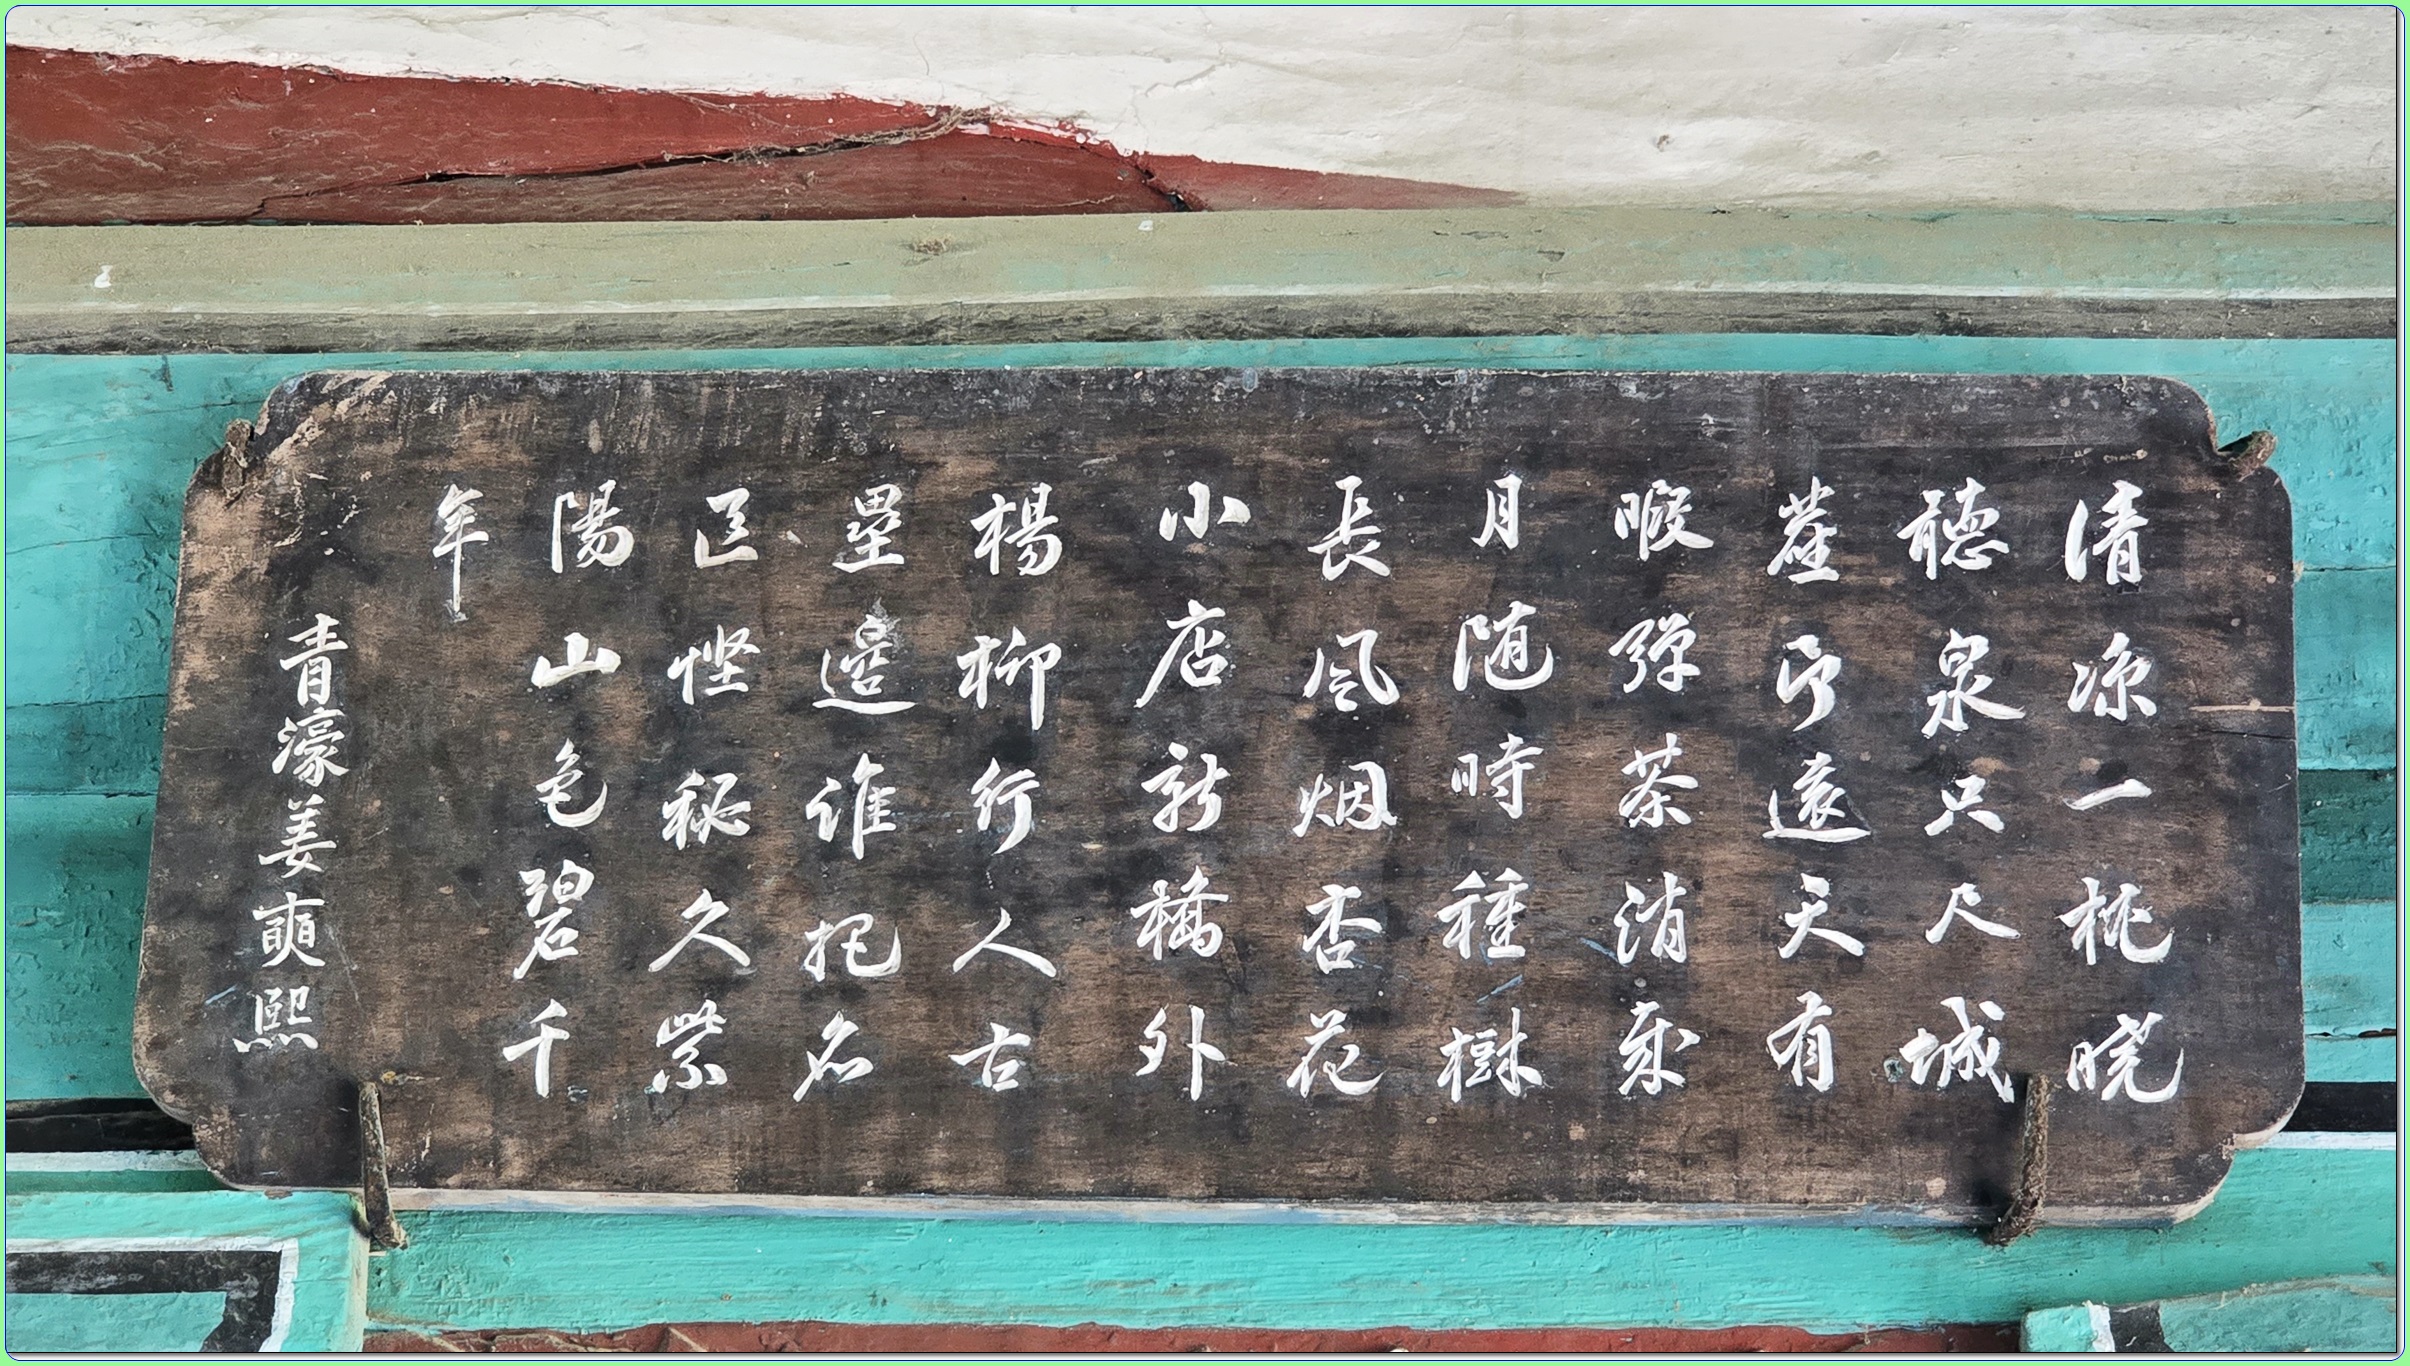 清凉一枕晓
聽泉只尺城
塵所遠天有
暇彈茶消歲
月随時種樹
長風烟杏花
小店新橋外
楊柳行人古
壘邊誰把名
區慳秘久紫
陽山色碧千
年
青濠姜奭熙